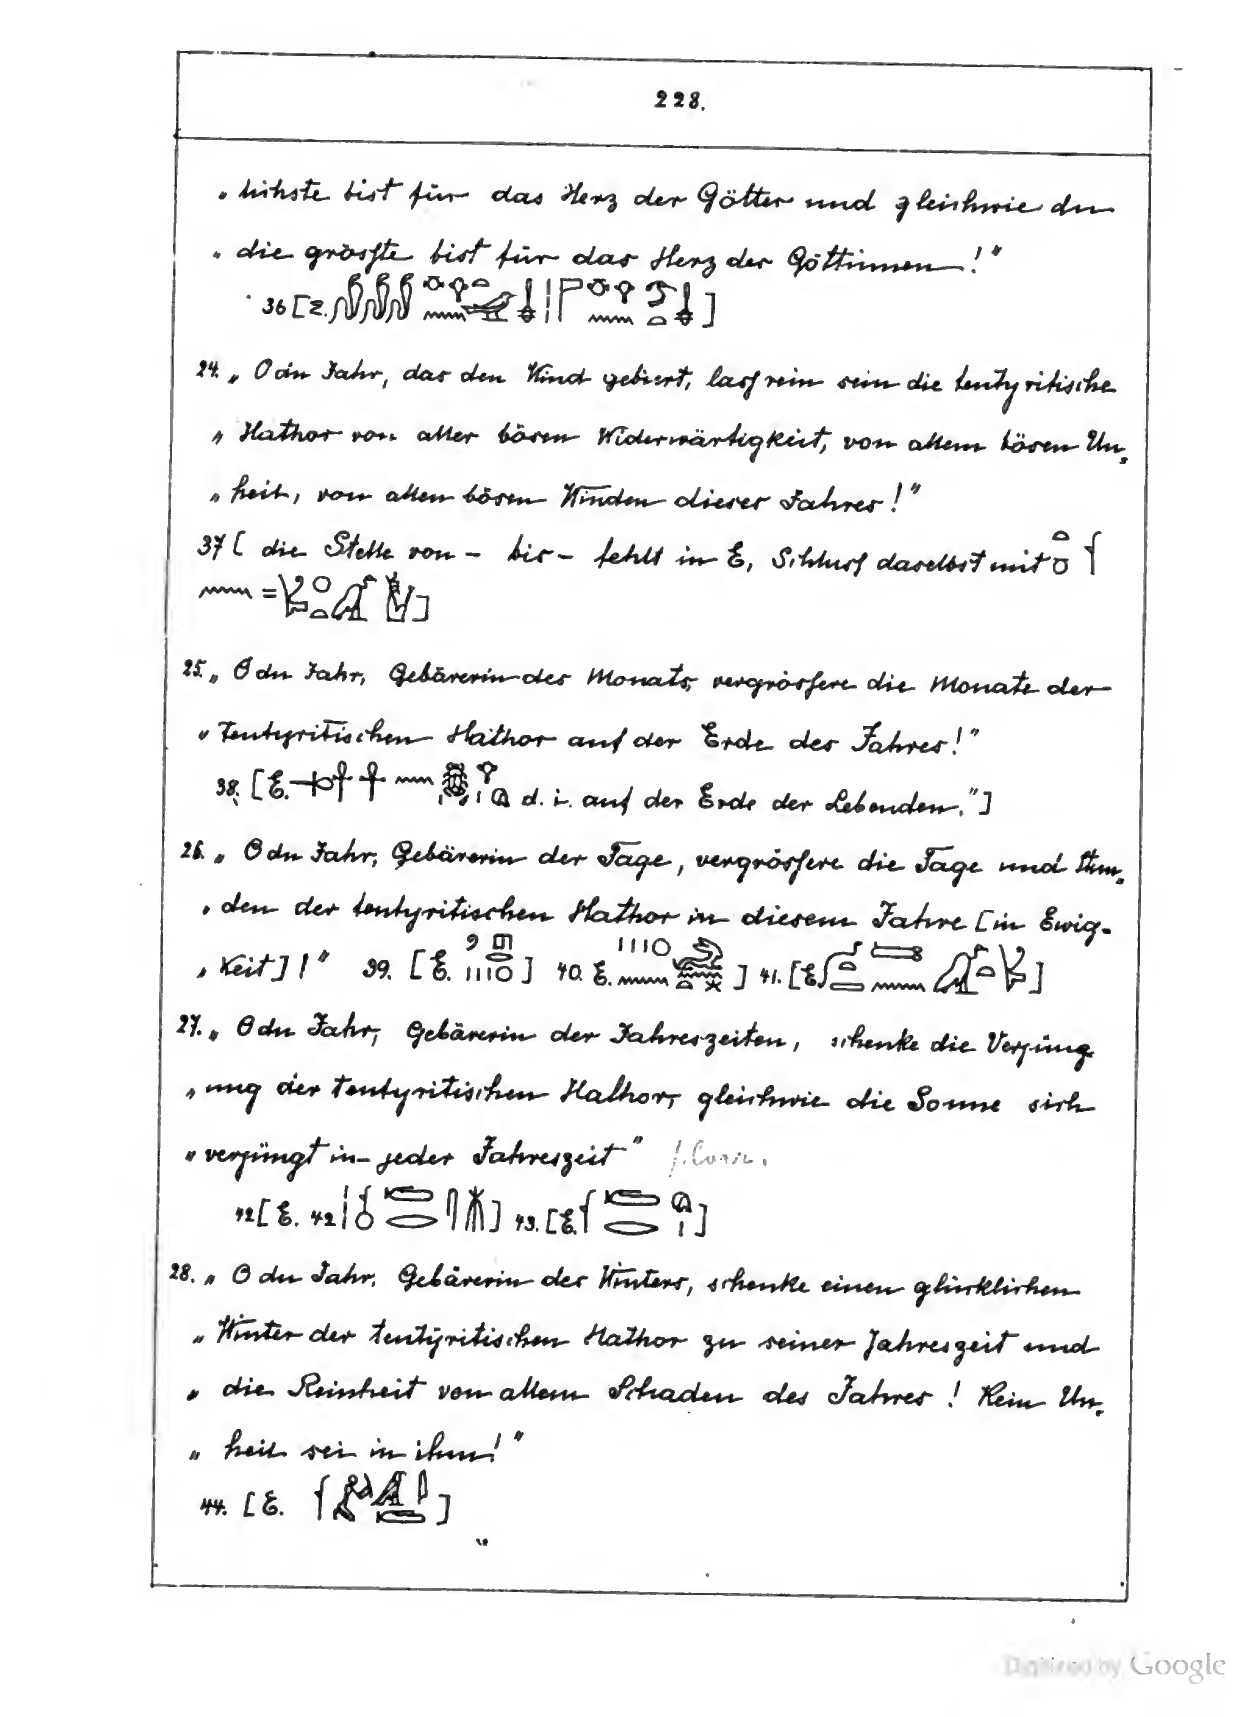 228.
„ höchste bist für das Herz der Götter und gleichwie du
„ die grösste bist für das Herz der Göttinnen!"
36 [Z. ]
24. „ O du Jahr, das den Wind gebiert, lass rein sein die tentyritische
„ Hathor von aller bösen Widerwärtigkeit, von allem bösen Un-
„ heil, von allen bösen Winden dieses Jahres!"
37 [ die Stelle von – bis – fehlt in E, Schluss daselbst mit
= ]
25. „ O du Jahr, Gebärerin des Monats, vergrössere die Monate der
„ Tentyritischen Hathor auf der Erde des Jahres!"
38. [E. d. i. auf der Erde der Lebenden."]
26. „ O du Jahr, Gebärerin der Tage, vergrössere die Tage und Stun-
„ den der tentyritischen Hathor in diesem Jahre [in Ewig-
„ keit]!" 39. [E. ] 40. E. ] 41. [E. ]
27. „ O du Jahr, Gebärerin der Jahreszeiten, schenke die Verjüng
„ ung der tentyritischen Hathor, gleichwie die Sonne sich
„ verjüngt in jeder Jahreszeit"
42 [E. 42 ] 43. [E. ]
28. „ O du Jahr, Gebärerin des Winters, schenke einen glücklichen
„ Winter der tentyritischen Hathor zu seiner Jahreszeit und
„ die Reinheit von allem Schaden des Jahres! Kein Un-
„ heil sei in ihm!"
44. [E. ]
Digitized by Google